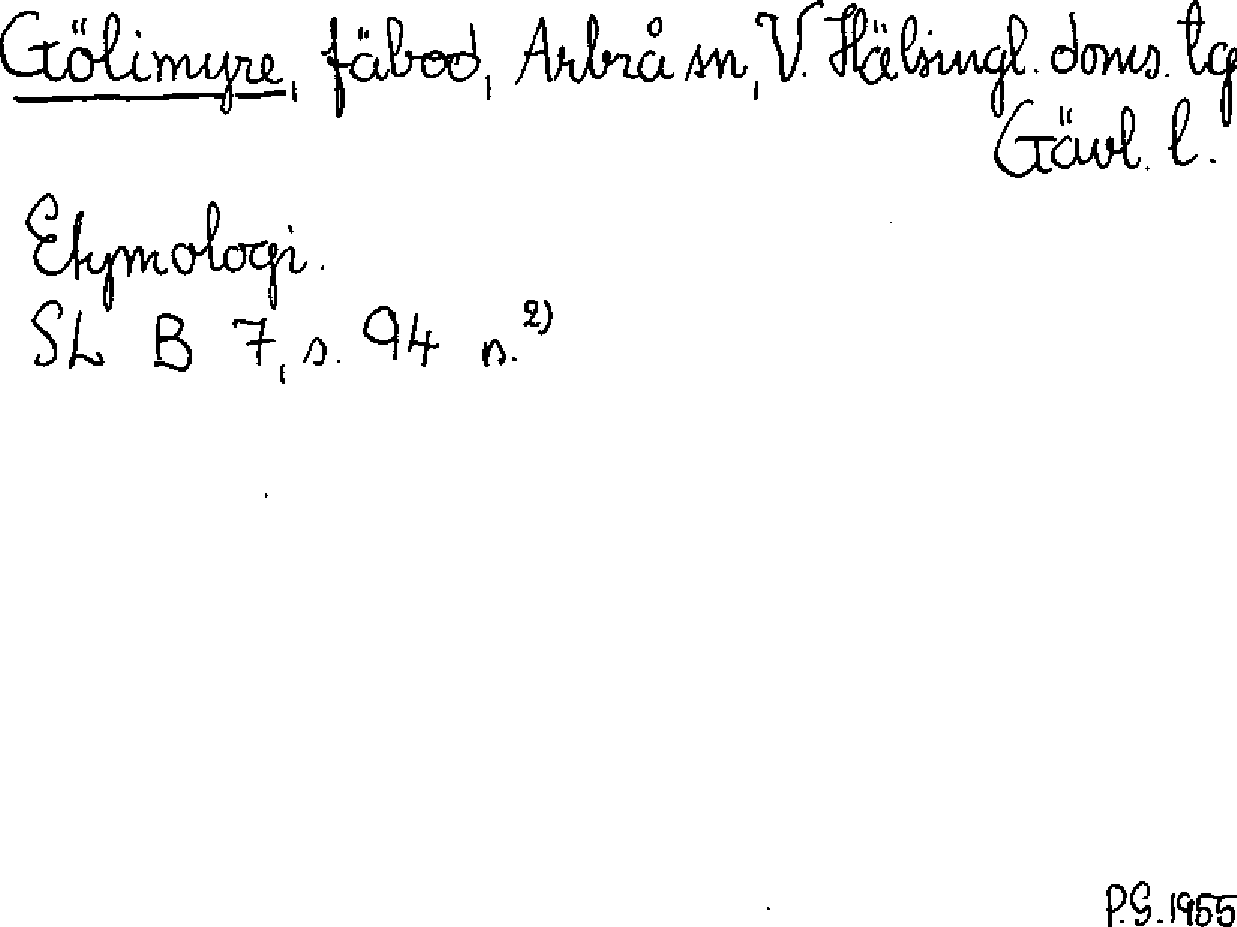 Gölimyre, fäbod, Arbrå sn, V. Hälsingl. doms. tg
Gävl. l.
Etymologi.
SL B 7, s. 94 n. 2)
P.G. 1955